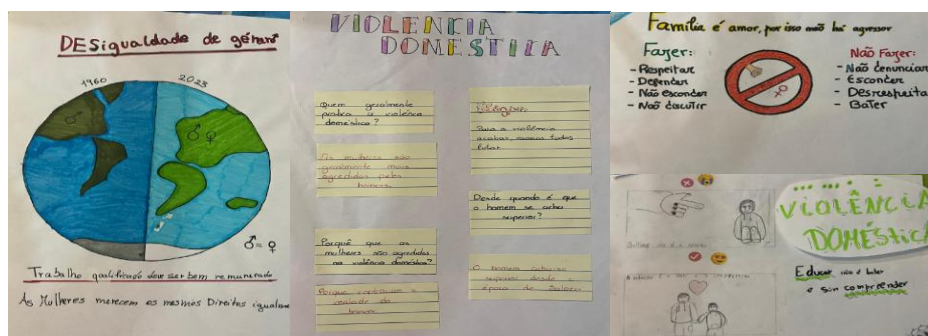 DESigualdade de género
1960
2023
♂ ♀
♂ = ♀
Trabalho qualificado deve ser bem remunerado
As Mulheres merecem os mesmos Direitos
VIOLENCIA
DOMESTICA
Quem geralmente
pratica a violência
doméstica?
As mulheres são
geralmente mais
agredidas pelos
homens
Porquê que as
mulheres são agredidas
na violência doméstica?
Porque
homem
Para a violência
acabar, vamos todos
lutar
Desde quando é que
o homem se acha
superior?
O homem
superior desde a
época de Salazar
Família é amor, por isso não há agressor
Fazer:
- Respeitar
- Defender
- Não esconder
- Não discutir
Não Fazer:
- Não denunciar
- Esconder
- Desrespeita
- Bater
VIOLÊNCIA
DOMÉSTICA
Educar não é bater
é sim compreender